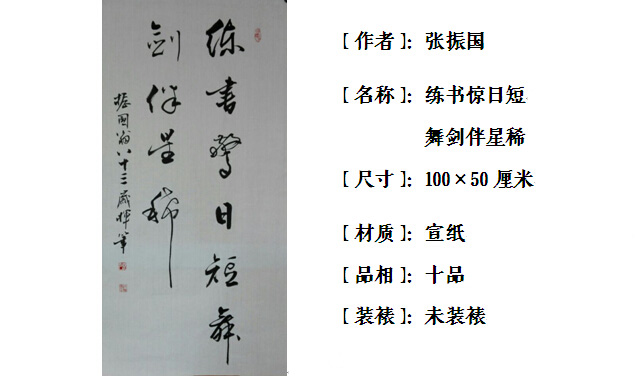 练书惊日短舞
剑伴星稀
振国翁八十三岁挥笔
【作者】：张振国
【名称】：练书惊日短
舞剑伴星稀
【尺寸】：100×50厘米
【材质】：宣纸
【品相】：十品
【装裱】：未装裱